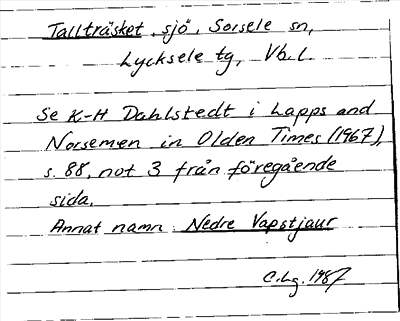 Tallträsket, sjö, Sorsele sn,
Lycksele tg, Vb.l.
Se K-H Dahlstedt i Lapps and
Norsemen in Olden Times (1967),
s. 88, not 3 från föregående
sida.
Annat namn: Nedre Vapstjaur
C.Lg. 1987